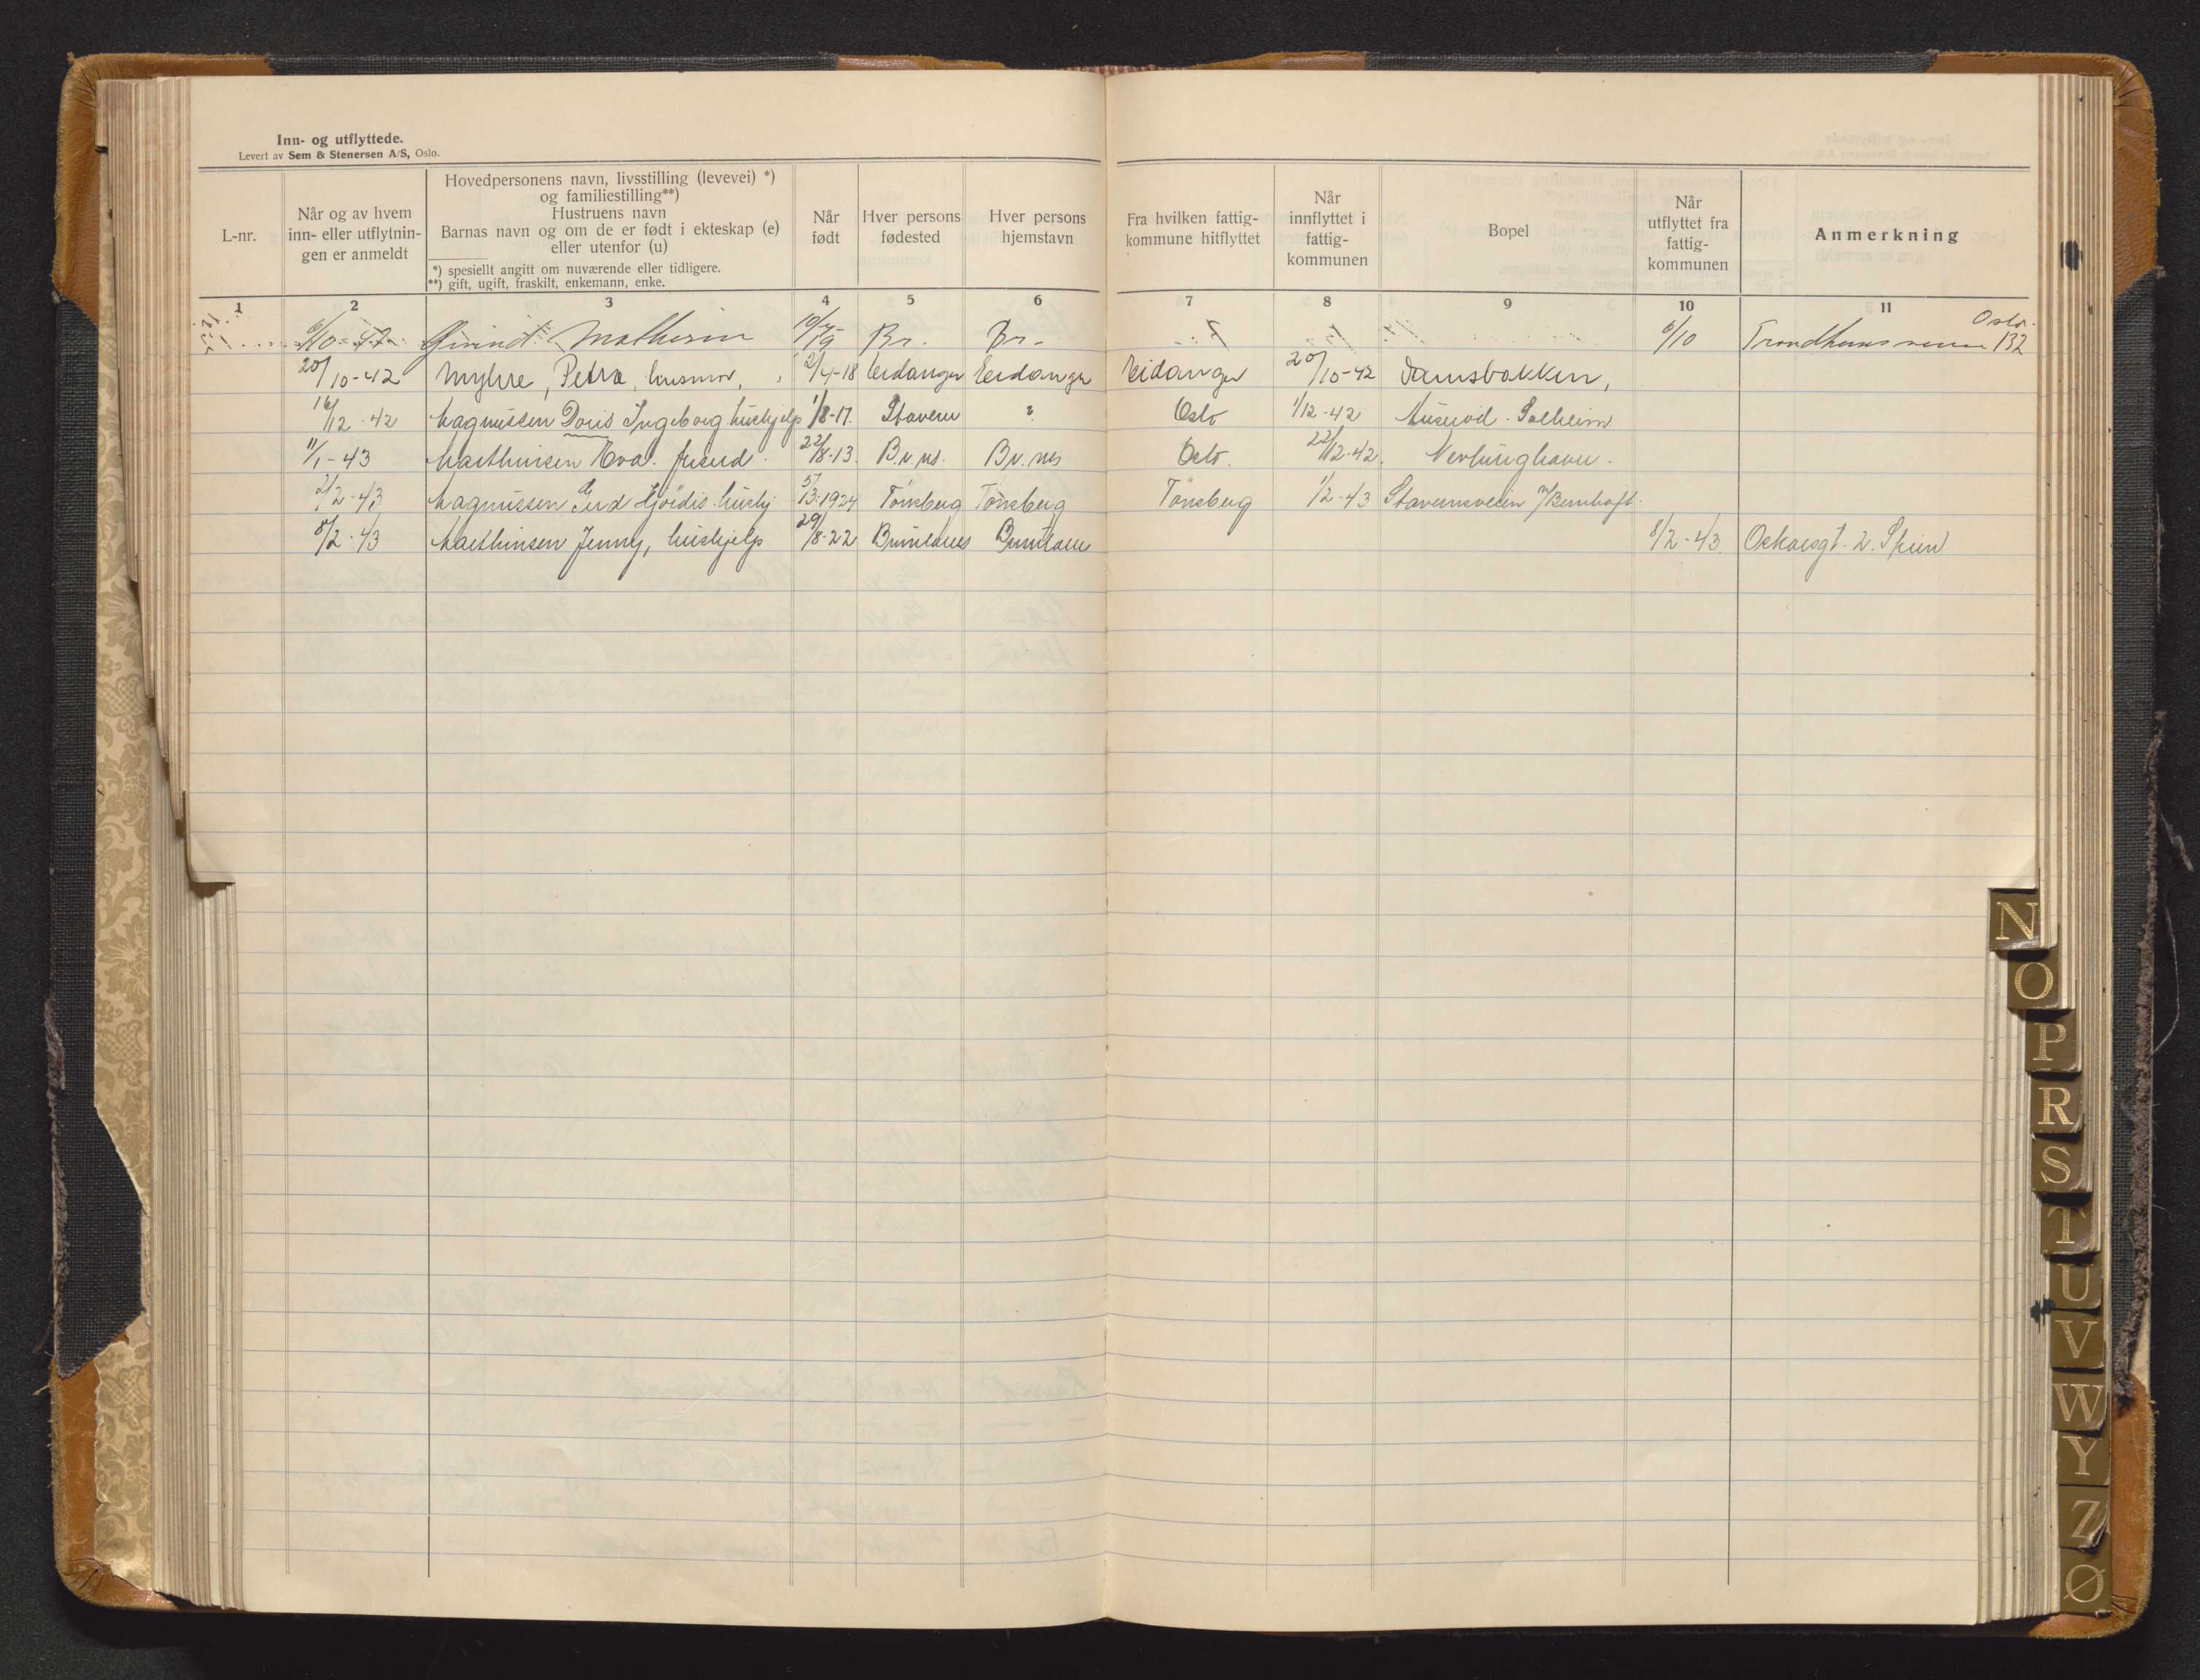 Inn- og utflyttede.
Levert av Sem & Stenersen A/S, Oslo.
L-nr.
Når og av hvem inn- eller utflytnin-gen er anmeldt
Hovedpersonens navn, livsstilling (levevei) *)
og familiestilling**)
Hustruens navn
Barnas navn og om de er født i ekteskap (e)
eller utenfor (u)
*) spesiellt angitt om nuværende eller tidligere.
**) gift, ugift, fraskilt, enkemann, enke.
Når født
Hver persons fødested
Hver persons hjemstavn
Fra hvilken fattig-kommune hitflyttet
Når innflyttet i fattig-kommunen
Bopel
Når utflyttet fra fattig-kommunen
Anmerkning
1 2 3 4 5 6 7 8 9 10 11
6/10-42 Øivind Mathesen 19 Br. Br. 6/10 Trondheimsveien 132 Oslo.
20/10-42 Myhre, Petra, husmor, 2/4-18 Eidanger Eidanger Eidanger 20/10-42 Damsbakken,
16/12-42 Magnussen Doris Ingeborg hushjelp 1/8-17. Stavern ? Oslo 1/12-42 Solheim
11/1-43 Marthinsen Eva. 22/8-13. B.v.ns. Bv.ns Oslo. 22/12-42. Nevlunghavn.
2/2-43 Magnussen Gerd Hjördis hushj 5/13-1924 Tönsberg Tönsberg Tönsberg 1/2-43 Stavernsveien m/Bernhoft.
8/2-43 Marthinsen Jenny, hushjelp 29/8-22 Brunlanes Brunlanes 8/2-43 Oskarsgt. 2. Skien
N
O
P
R
S
T
U
V
W
Y
Z
Ø